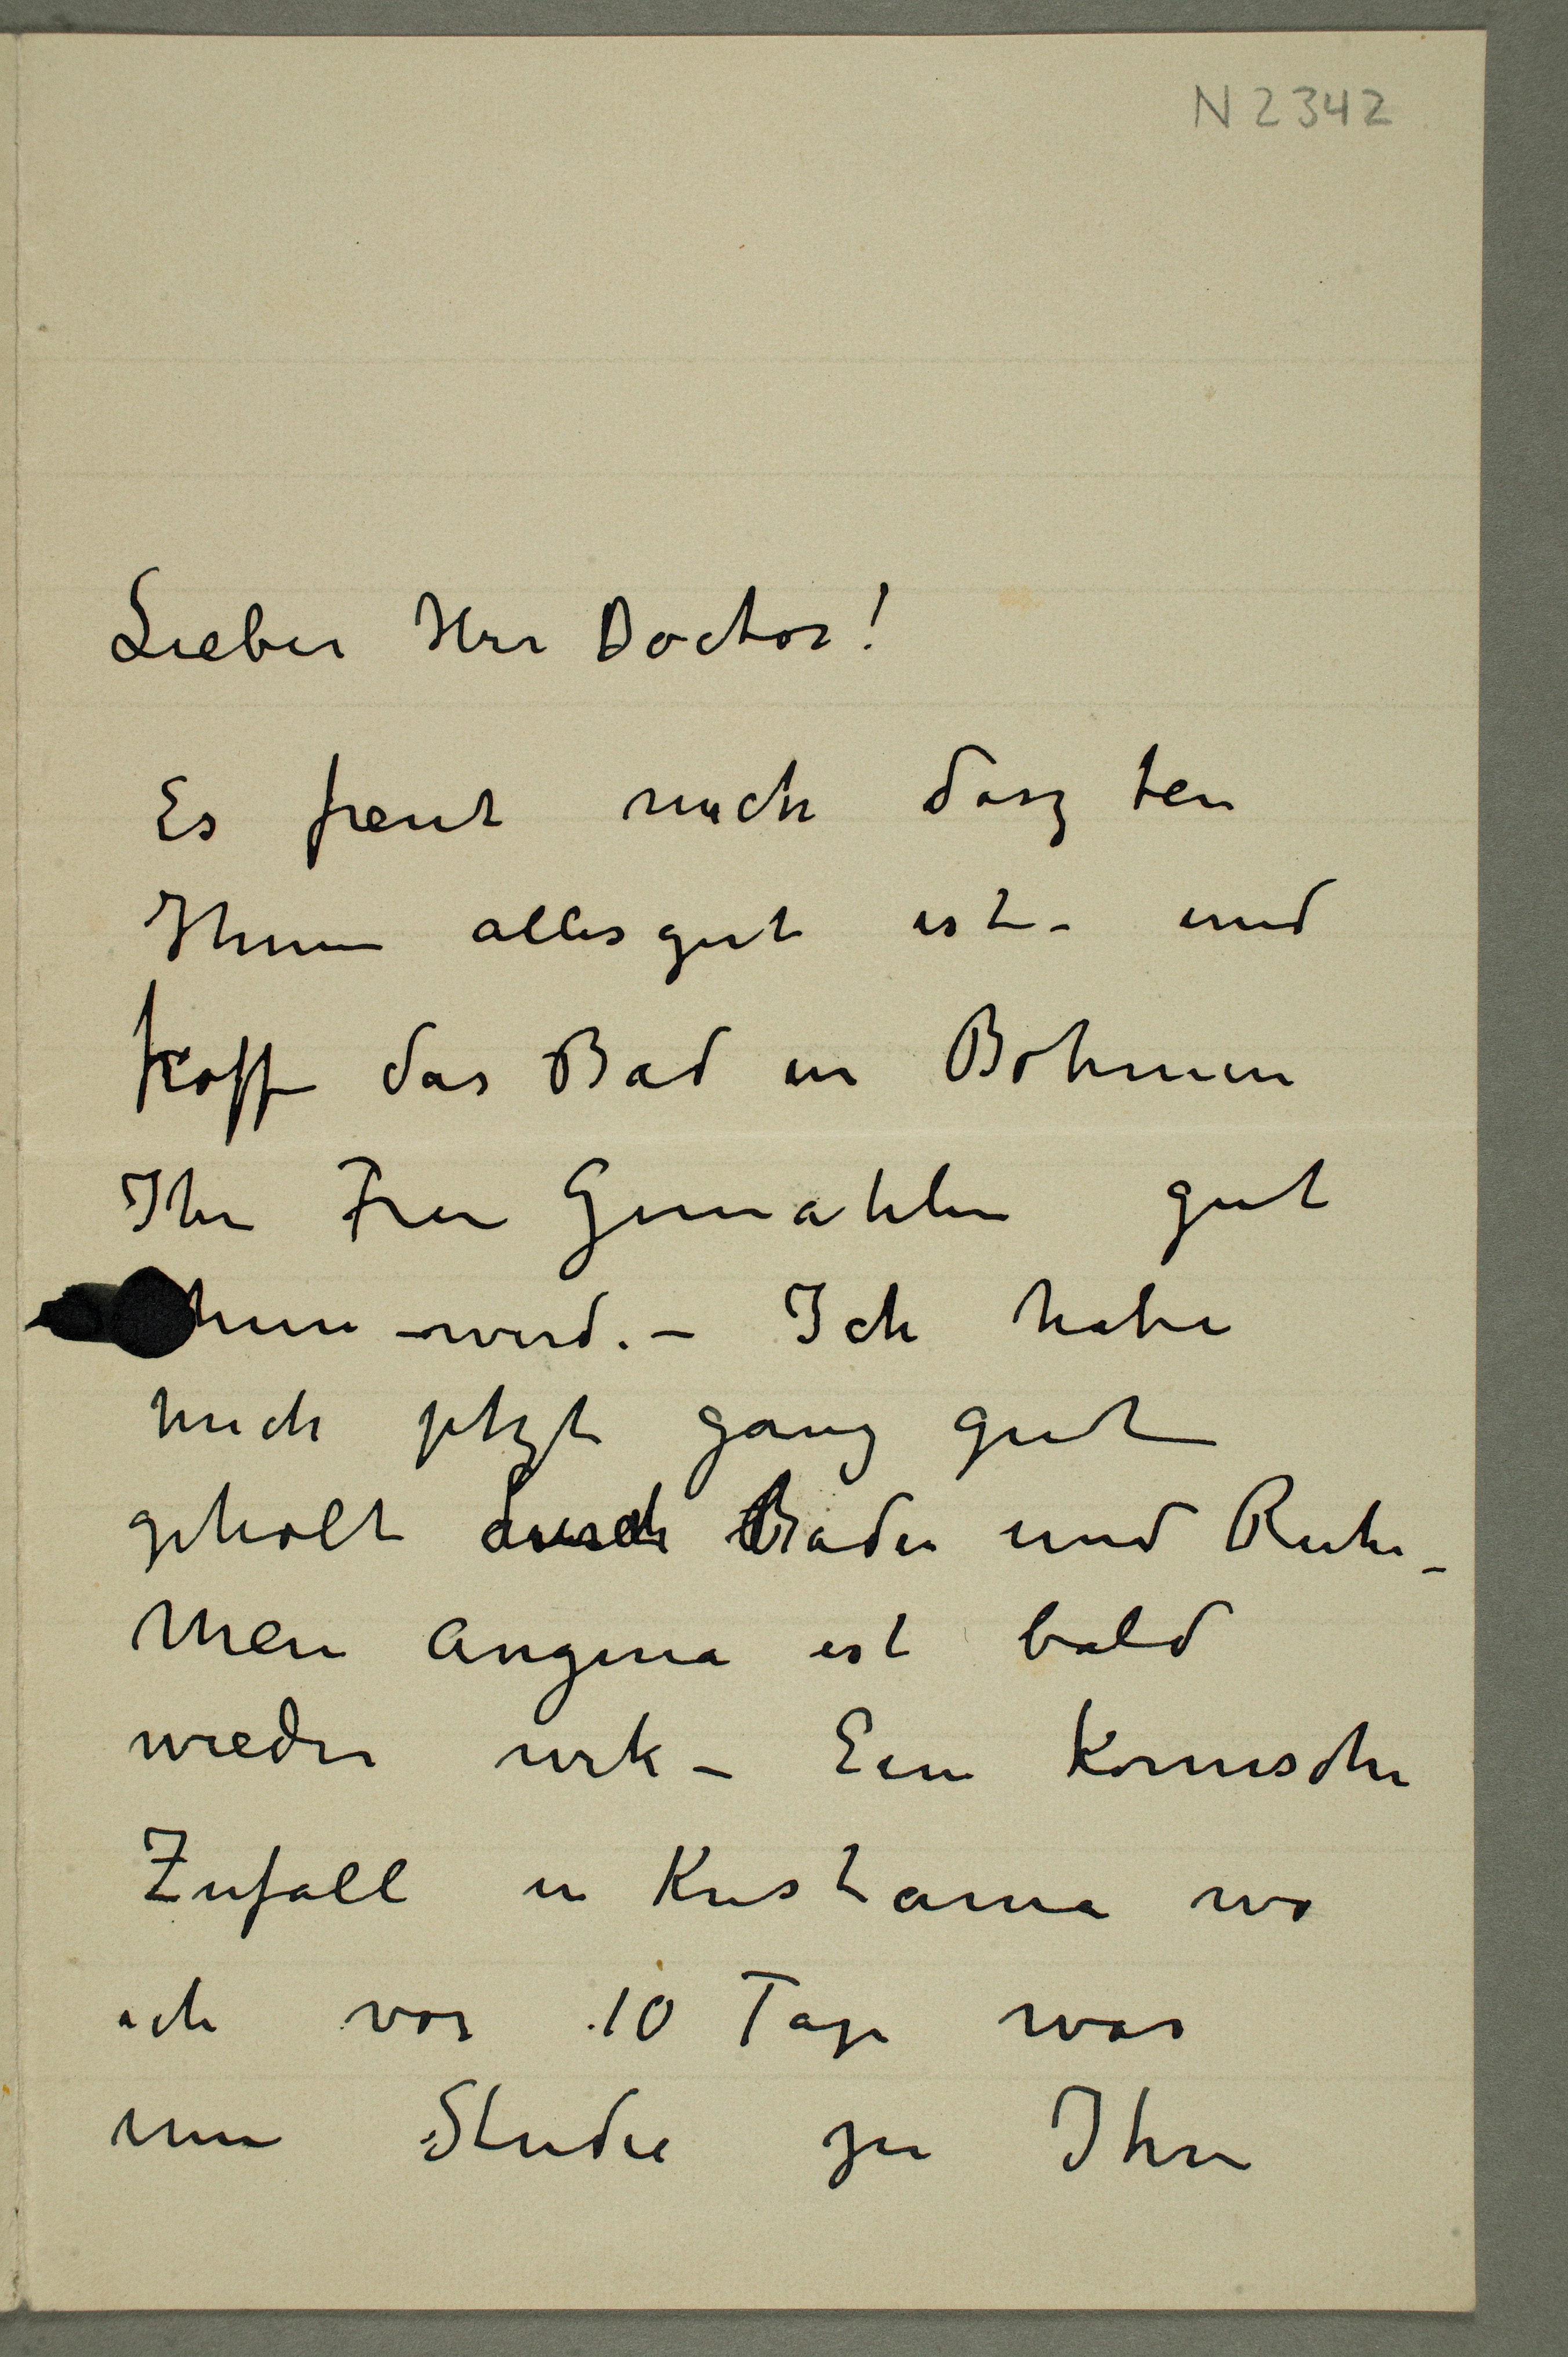 N 2342
Lieber Herr Doctor!
Es freut mich dasz bei
Ihnen alles gut ist – und
hoffe das Bad in Böhmen
Ihre Frau Gemahlin gut
thun wird. – Ich habe
mich jetzt ganz gut
geholt durch Bäder und Ruhe –
Mein Angina ist bald
wieder wek – Ein komischer
Zufall in Kristiania wo
ich vor 10 Tage war
um Studie zu Ihre